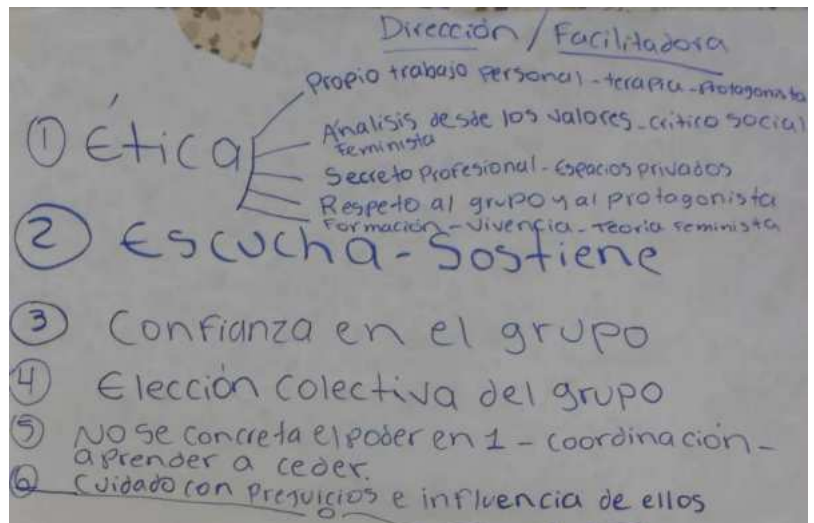 Dirección / Facilitadora
Propio trabajo personal - terapia - Protagonista
① Ética
Análisis desde los valores - crítico social
feminista
Secreto Profesional - Espacios privados
Respeto al grupo y al protagonista
Formación - Vivencia - Teoría feminista
② Escucha - Sostiene
③ Confianza en el grupo
④ Elección colectiva del grupo
⑤ No se concreta el poder en 1 - coordinación -
aprender a ceder.
⑥ Cuidado con prejuicios e influencia de ellos